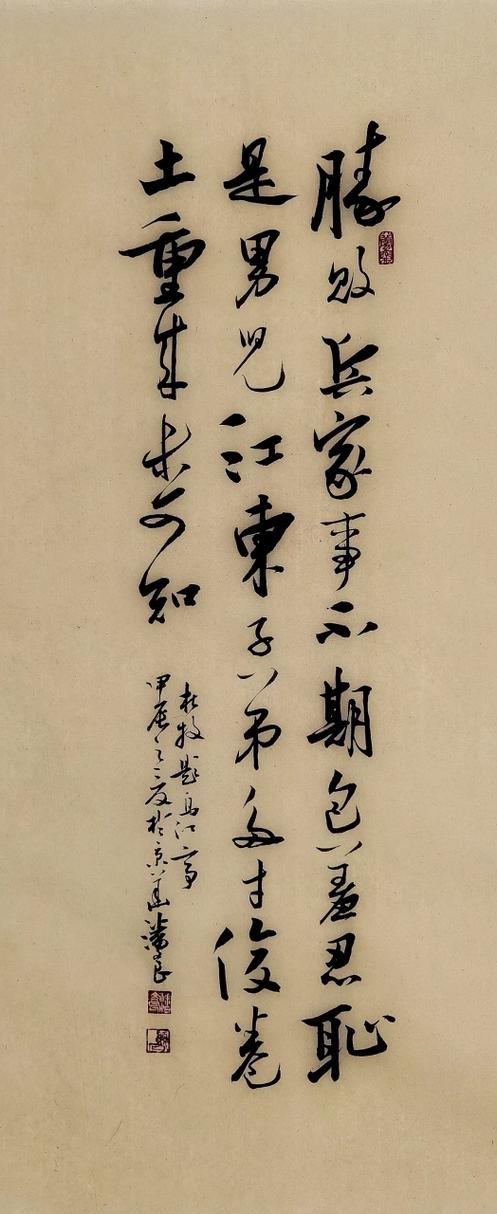 勝敗兵家事不期包羞忍恥
是男兒江東子弟多才俊卷
土重来未可知
杜牧題烏江亭
甲辰之夏於京華潘良